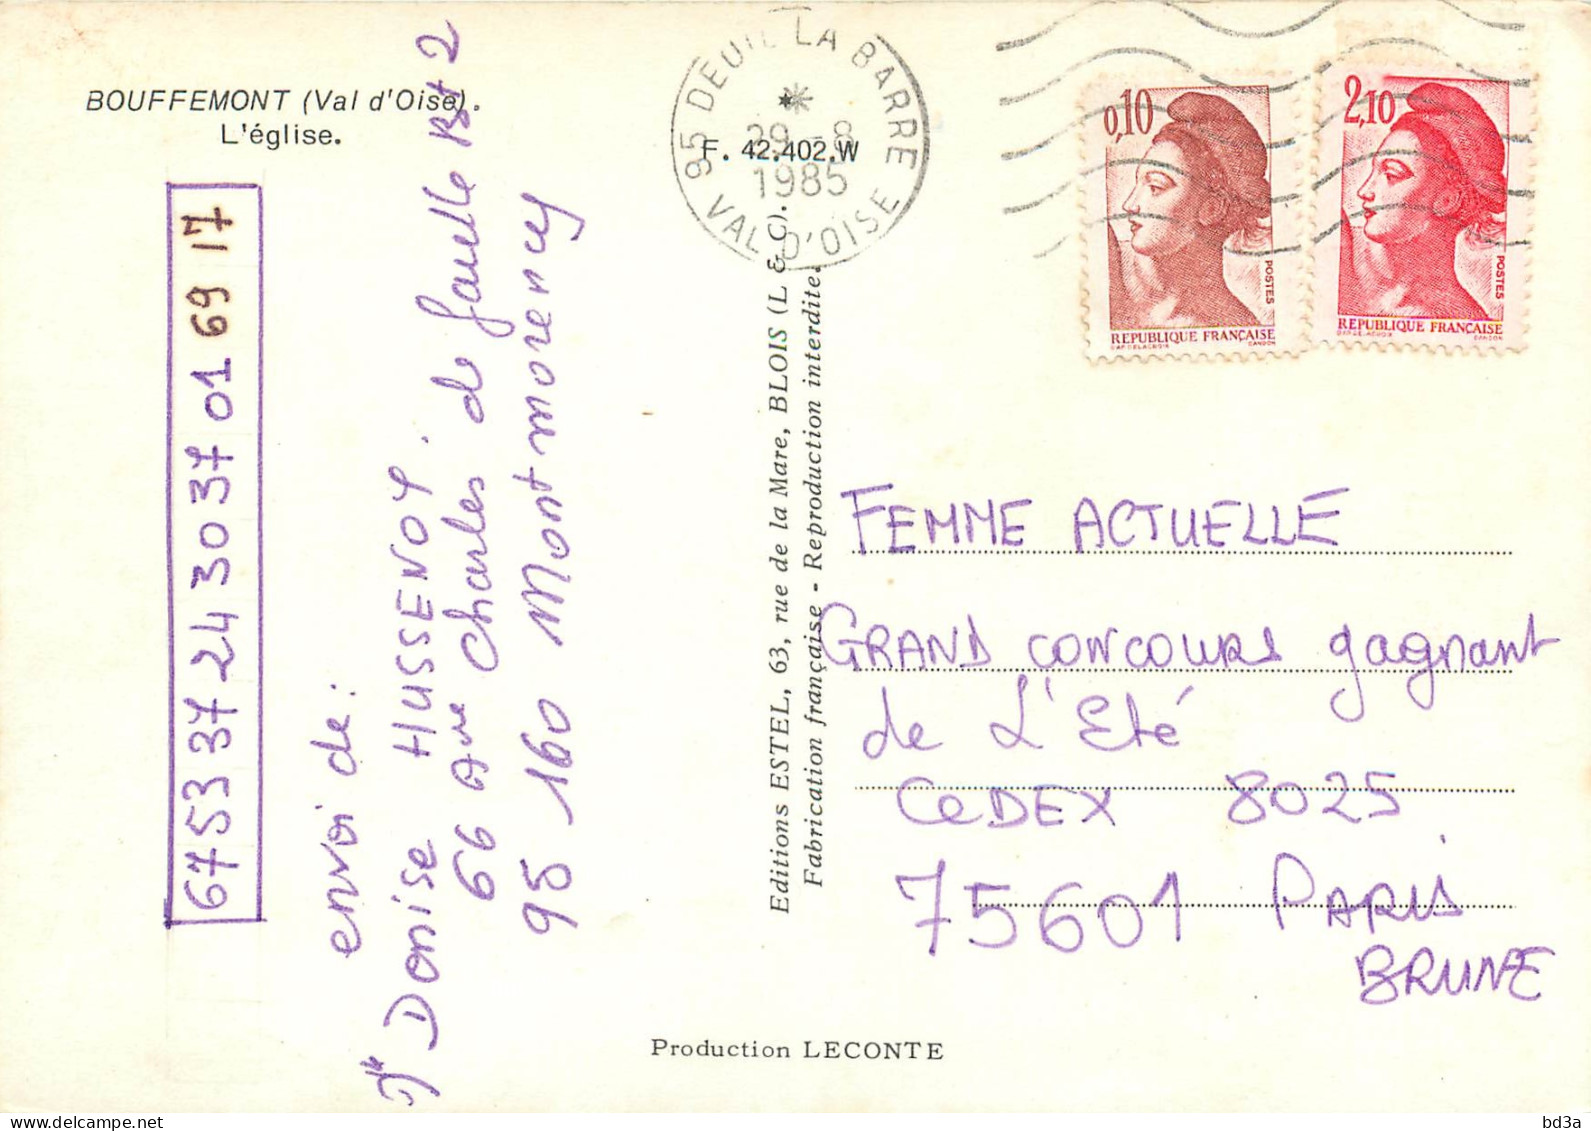 BOUFFEMONT (Val d'Oise).
L'église.
67 53 37 24 30 37 01 69 17
envoi de:
Denise HUSSENOY.
66 Ave Charles de Gaulle Bt 2
95 160 Montmorency
95 DEUIL LA BARRE
29 - 8
1985
VAL D'OISE
F. 42.402.W
Editions ESTEL, 63, rue de la Mare, BLOIS (L & C).
Fabrication française - Reproduction interdite.
0,10
POSTES
REPUBLIQUE FRANÇAISE
2,10
POSTES
REPUBLIQUE FRANÇAISE
FEMME ACTUELLE
GRAND CONCOURS gagnant
de L'Eté
CeDEX 8025
75601 PARIS
BRUNE
Production LECONTE
bd3a